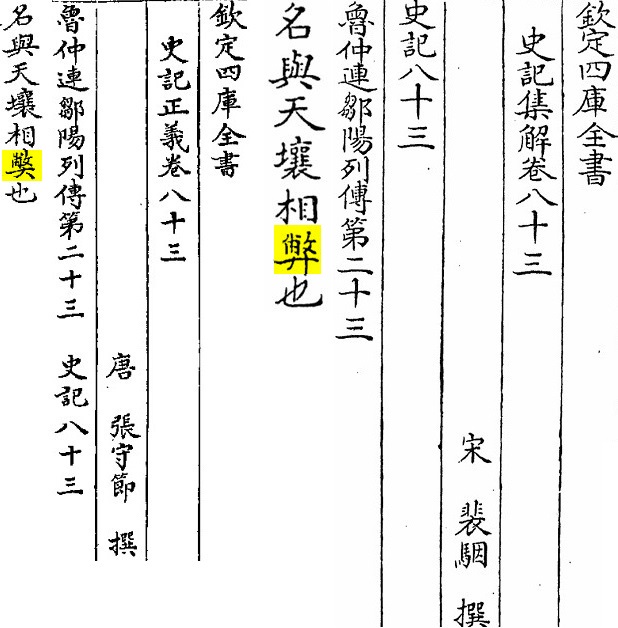 欽定四庫全書
史記集解卷八十三
宋 裴駰 撰
史記八十三
魯仲連鄒陽列傳第二十三
名與天壤相弊也
欽定四庫全書
史記正義卷八十三
唐 張守節 撰
魯仲連鄒陽列傳第二十三 史記八十三
名與天壤相獘也